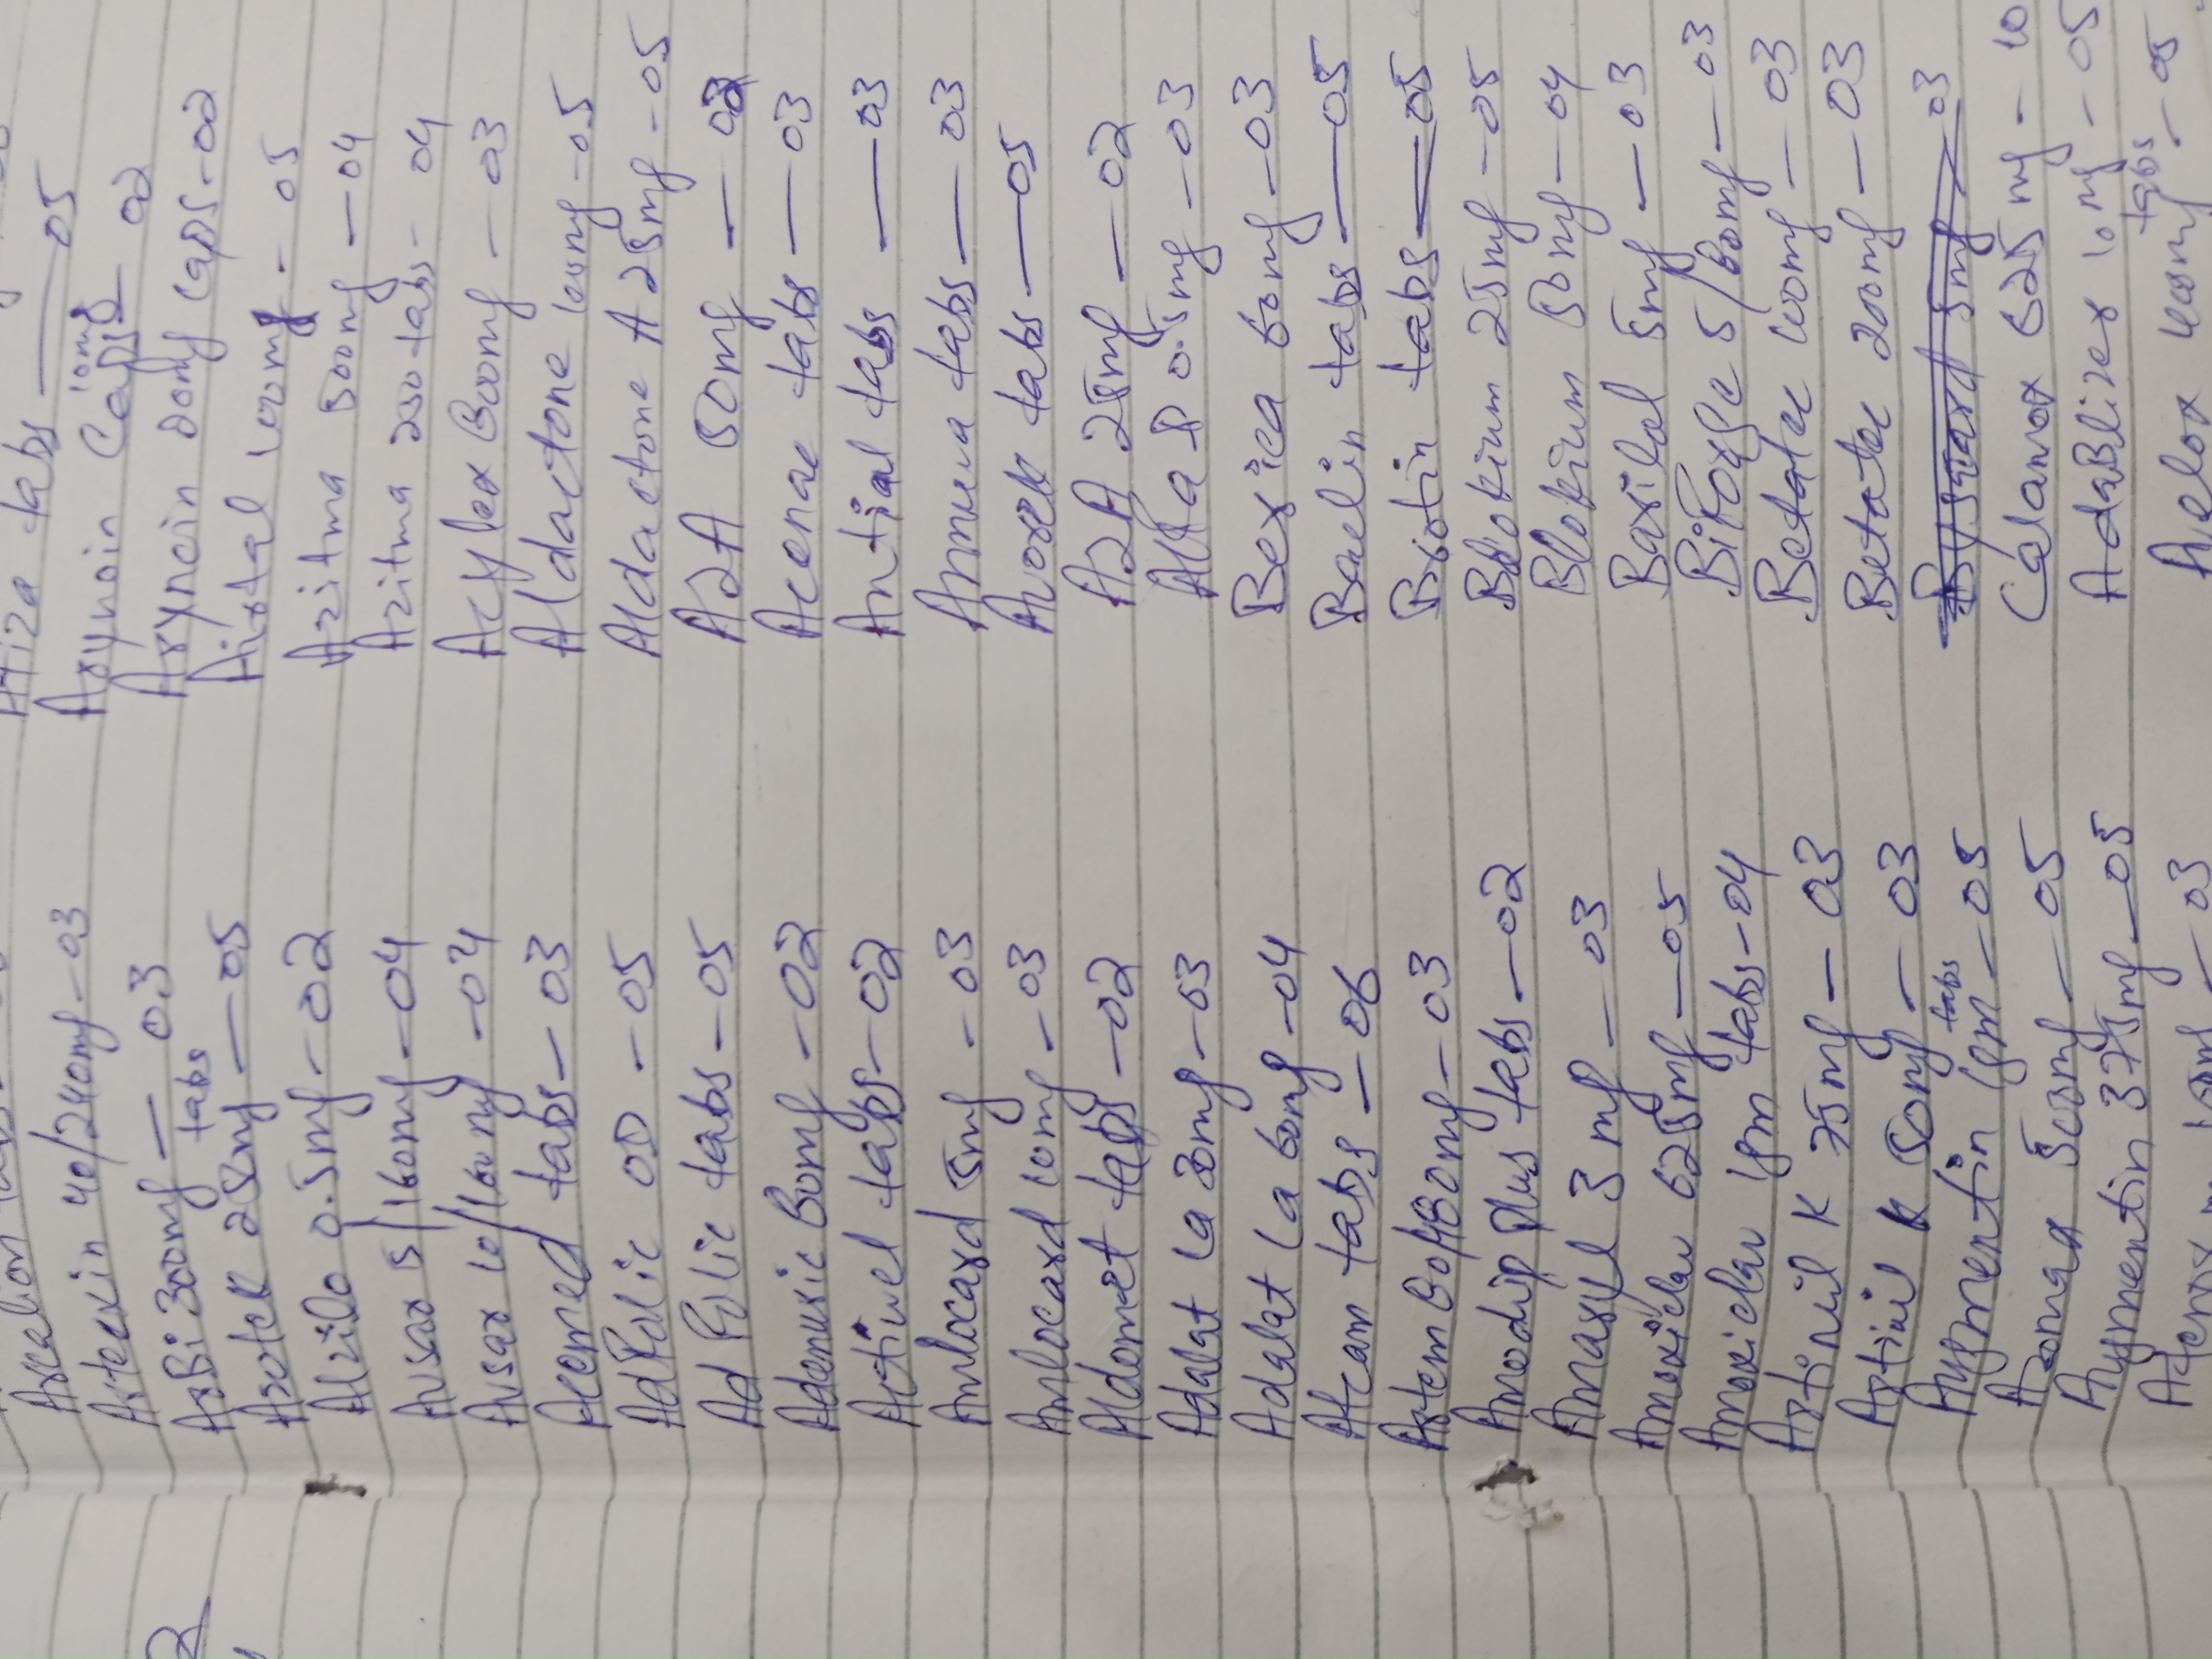 Arcelion tabs
Artecxin 40/240mg - 03
Arbi 300mg — 03
Azotek 250mg tabs — 05
Alzilo 0.5mg - 02
Avsar 5/160mg - 04
Avsar 10/160mg - 04
Acemed tabs - 03
AdFolic OD - 05
Ad Folic tabs - 05
Adenuric 80mg - 02
Actinel tabs - 02
Amlocard 5mg - 03
Amlocard 10mg - 03
Aldomet tabs - 02
Adalat la 30mg - 03
Adalat la 60mg - 04
Afcam tabs - 06
Artem 80/480mg - 03
Amodip Plus tabs - 02
Amaryl 3mg - 03
Amoxiclav 625mg - 05
Amoxiclav 1gm tabs - 04
Artinil K 75mg - 03
Artinil K 50mg - 03
Augmentin 1gm tabs - 05
Aromax 500mg - 05
Augmentin 375mg - 05
- 03
tabs — 05
Arynoin 10mg Caps - 02
Aryncin 20mg Caps - 02
Airtal 100mg - 05
Azitma 500mg - 04
Azitma 250 tabs - 04
Acylex 800mg - 03
Aldactone 100mg - 05
Aldactone A 25mg - 05
A2A 50mg — 02
Acenac tabs — 03
Antial tabs — 03
Anmua tabs — 03
Avorek tabs — 05
A2A 25mg — 02
Alfa D 0.5mg - 03
Bexica 60mg - 03
Baclin tabs — 05
Biotin tabs — 05
Blokium 25mg - 05
Blokium 50mg - 04
Baxibal 5mg - 03
BiForge 5/160mg - 03
Betatec 100mg - 03
Betatec 200mg - 03
5mg 03
Calamox 625mg - 10
AdaBlizex 10mg - 05
Avelox 400mg tabs - 05